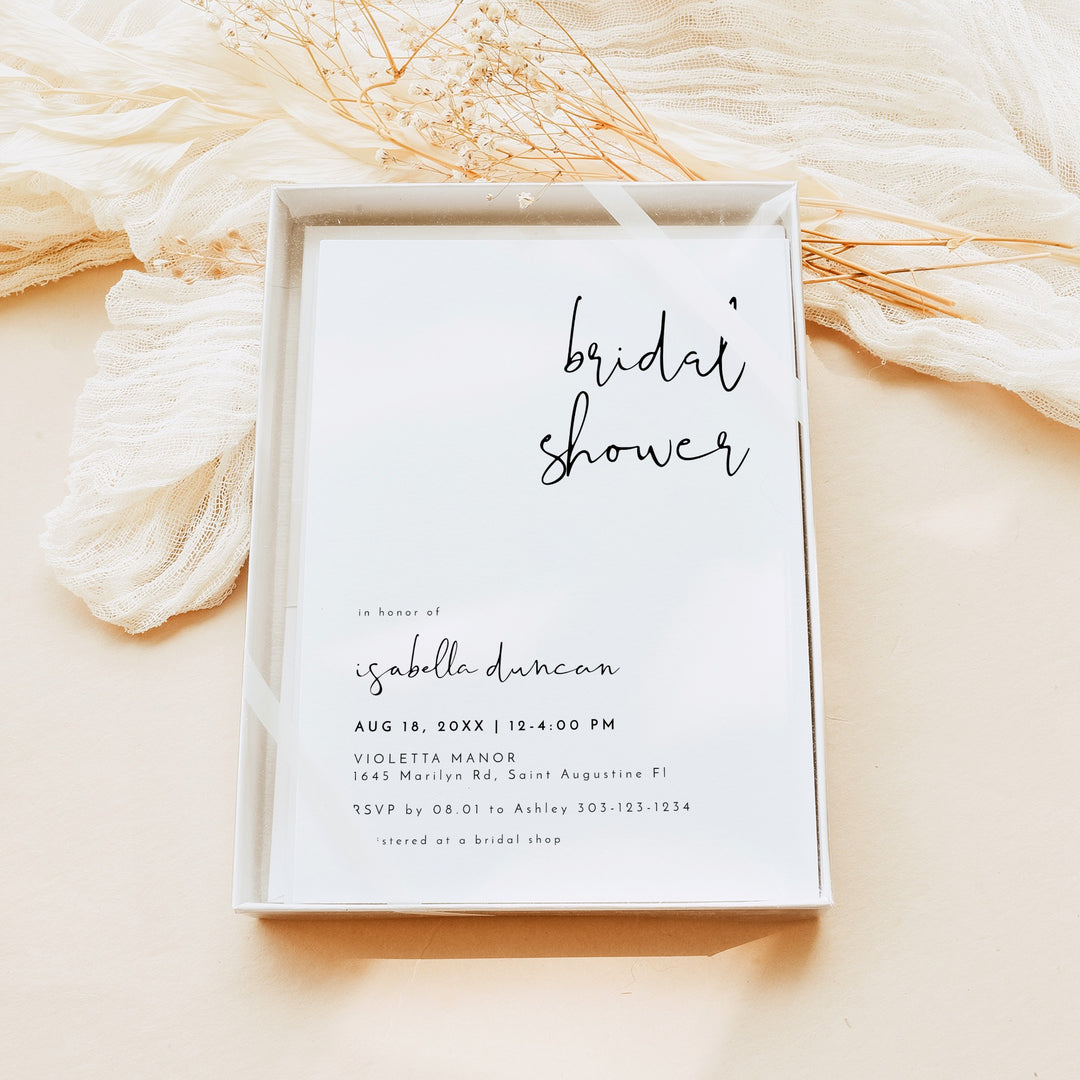 bridal
shower
in honor of
isabella duncan
AUG 18, 20XX | 12-4:00 PM
VIOLETTA MANOR
1645 Marilyn Rd, Saint Augustine Fl
RSVP by 08.01 to Ashley 303-123-1234
at a bridal shop